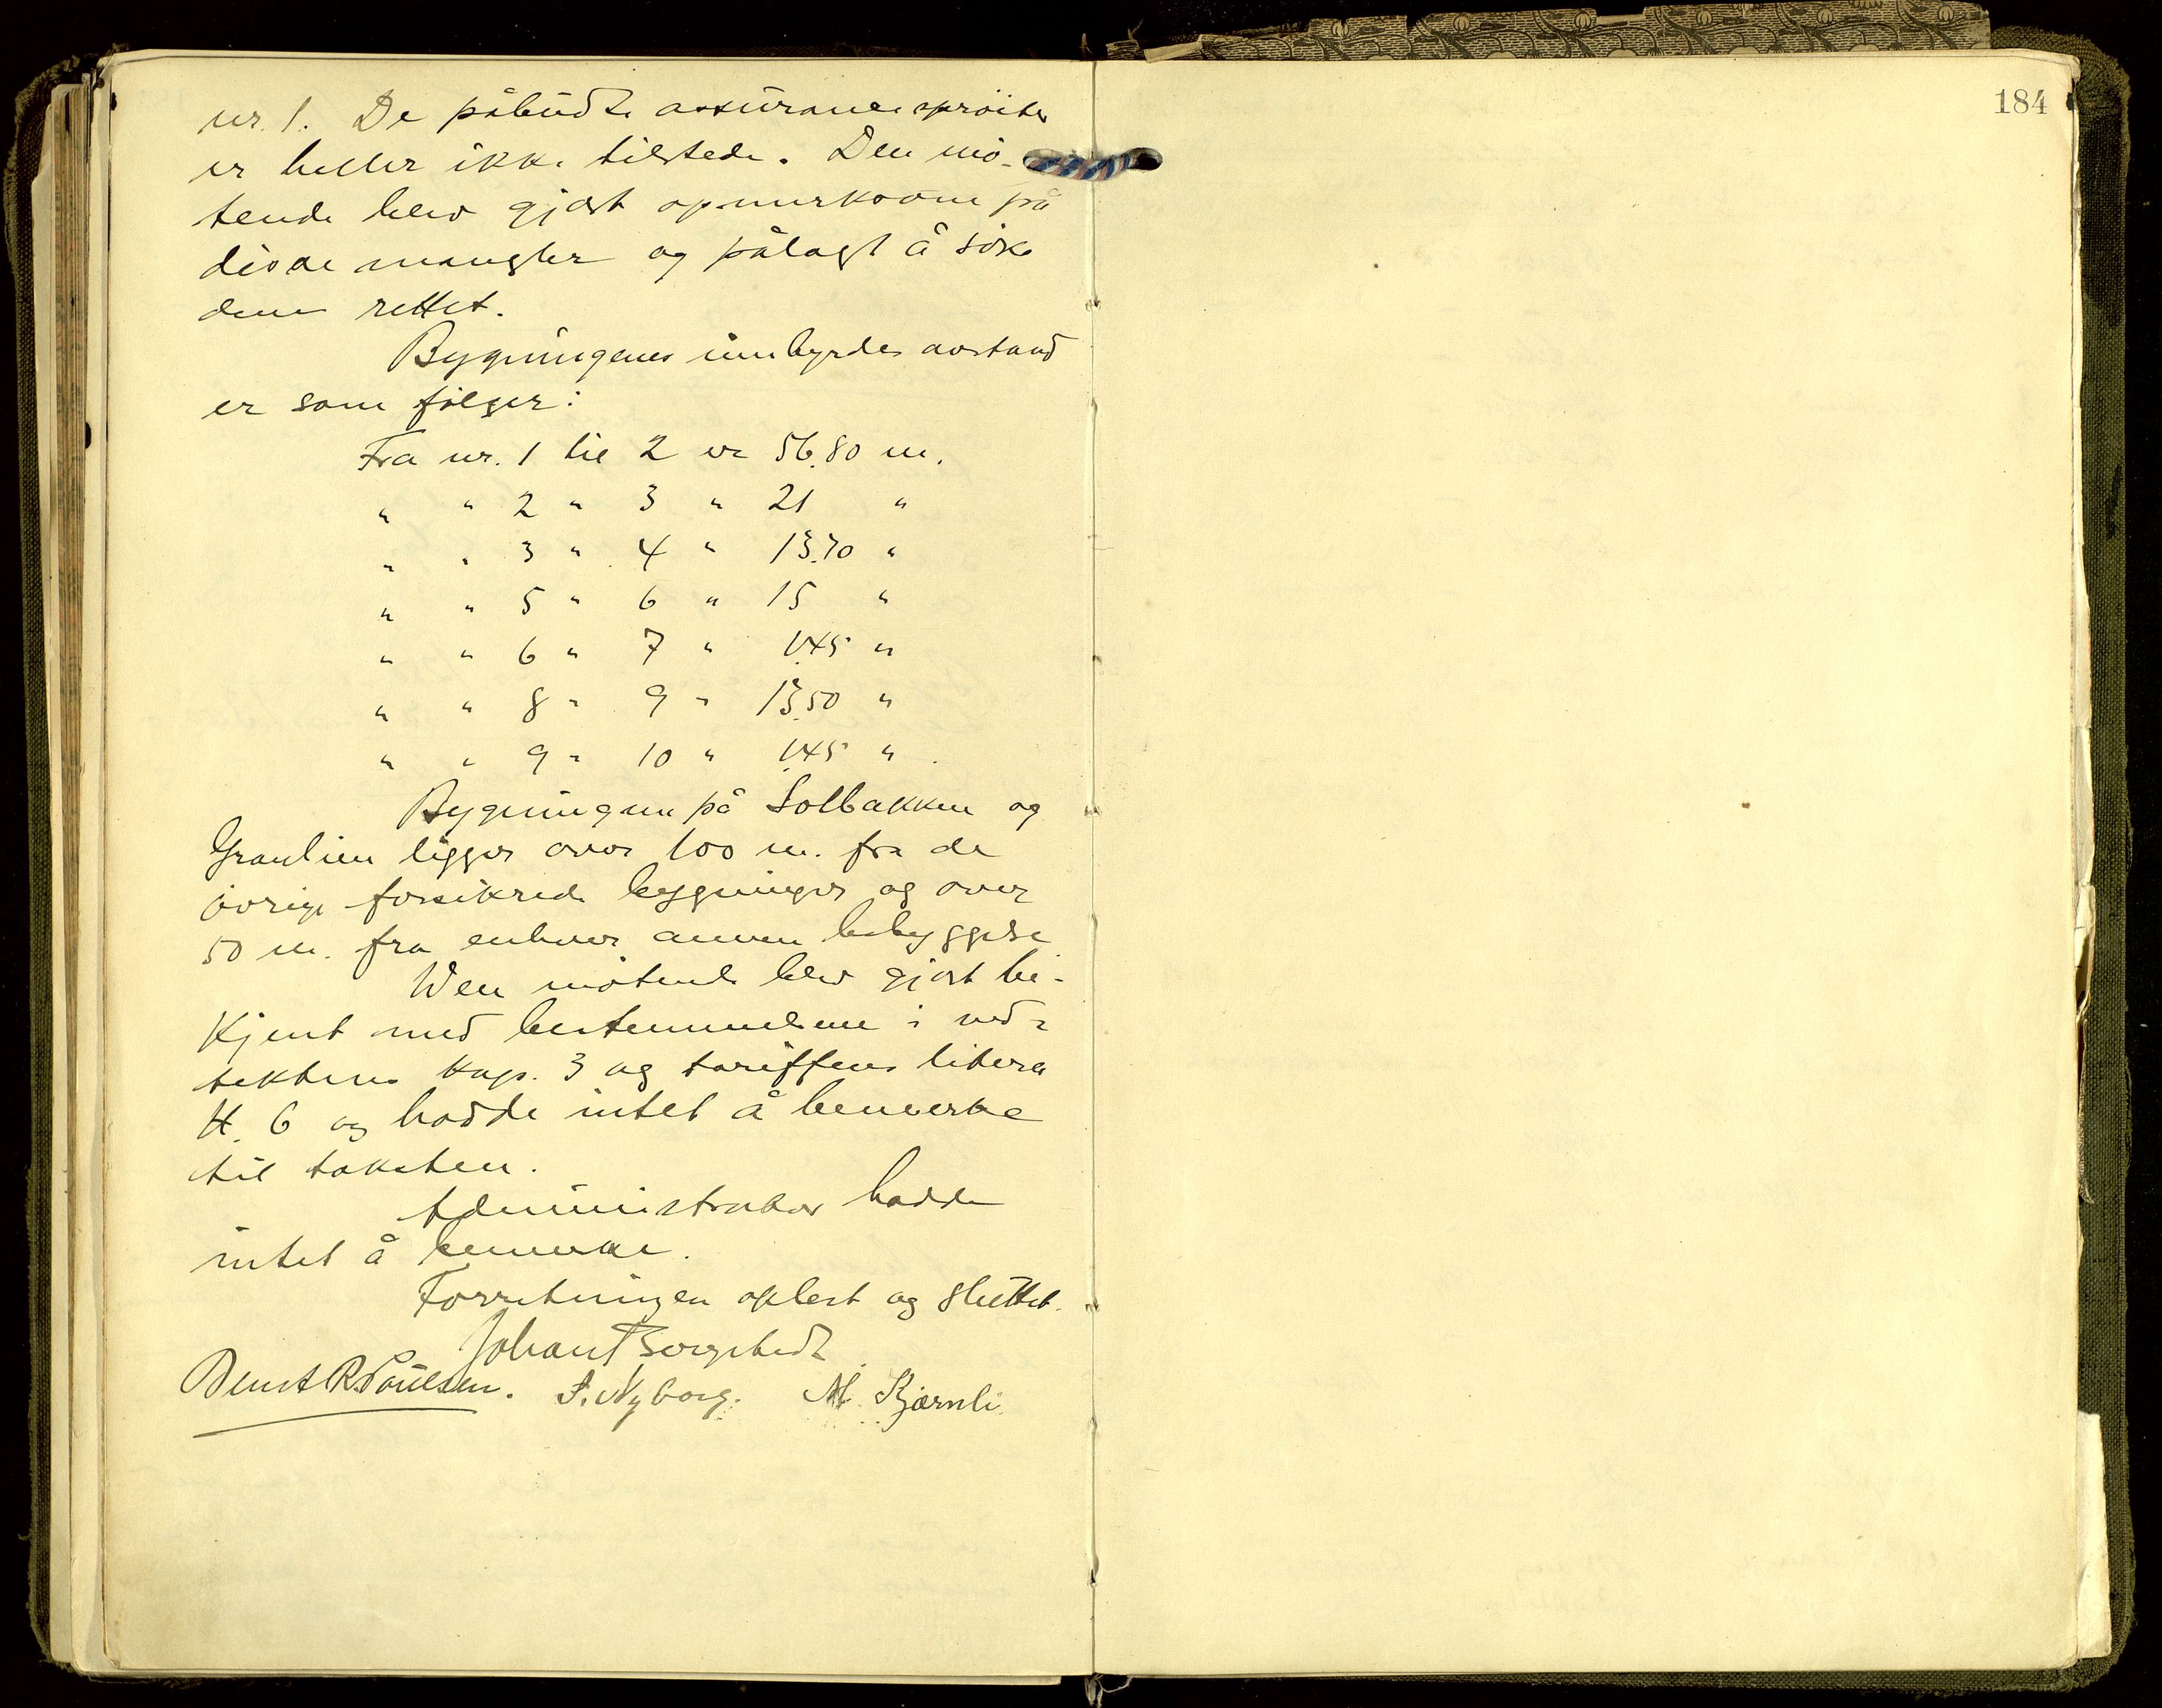 nr. 1. De påbudte assurancesprøiter
er heller ikke tilstede. Den mø-
tende blev gjort opmerksom på
disse mangler og pålagt å søke
dem rettet.
Bygningenes innbyrdes avstand
er som følger:
Fra nr. 1 til 2 er 56.80 m.
" " 2 " 3 " 21 "
" " 3 " 4 " 13.70 "
" " 5 " 6 " 15 "
" " 6 " 7 " 1.45 "
" " 8 " 9 " 13.50 "
" " 9 " 10 " 1.45 " .
Bygningene på Solbakken og
Granlien ligger over 100 m. fra de
øvrige forsikrede bygninger og over
50 m. fra enhver annen bebyggelse
Den møtende blev gjort be-
kjent med bestemmelsene i ved-
tektens kap. 3 og tariffens litera
H. 6 og hadde intet å bemerke
til taksten.
Administrator hadde
intet å bemerke.
Forretningen oplest og sluttet.
Johan Torgstedt
Bernt R. Paulsen. S. Nyborg. M. Bjørnli
184